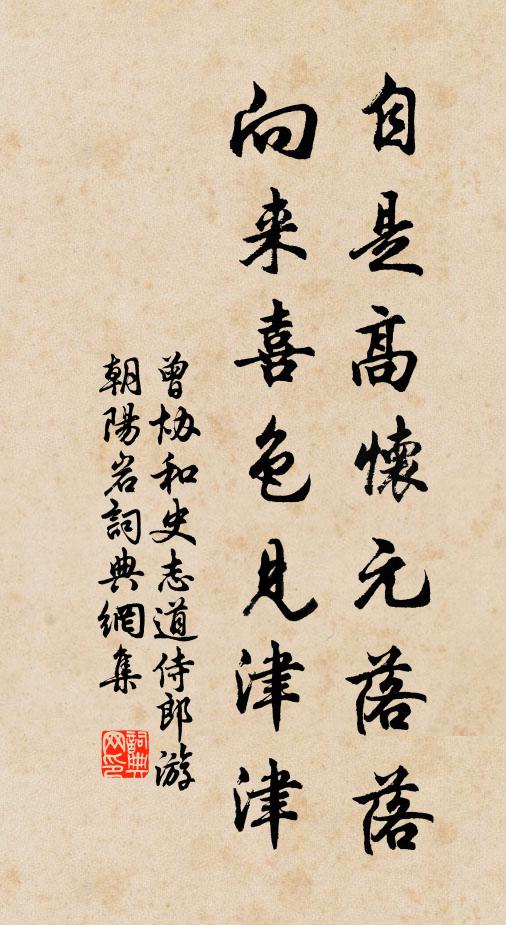 自是高懷元落落
向来喜色見津津
曾协和史志道侍郎游
朝陽岩詞典網集
詞典網印